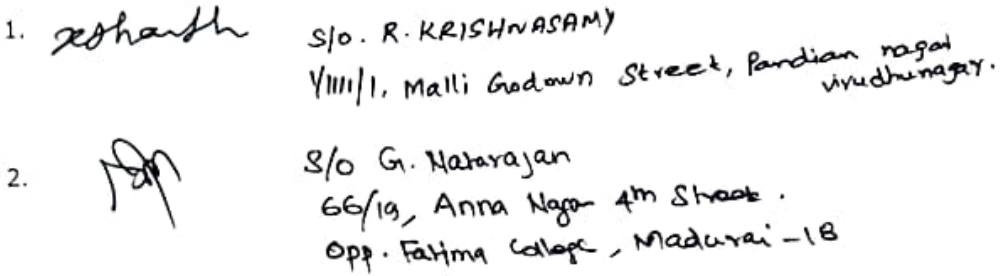 1. S/o. R. KRISHNASAMY
Malli Godown Street, Pandian nagar
virudhunagar.
2. S/o G. Natarajan
66/19, Anna Nagar 4th Street.
Opp. Fatima College, Madurai - 18